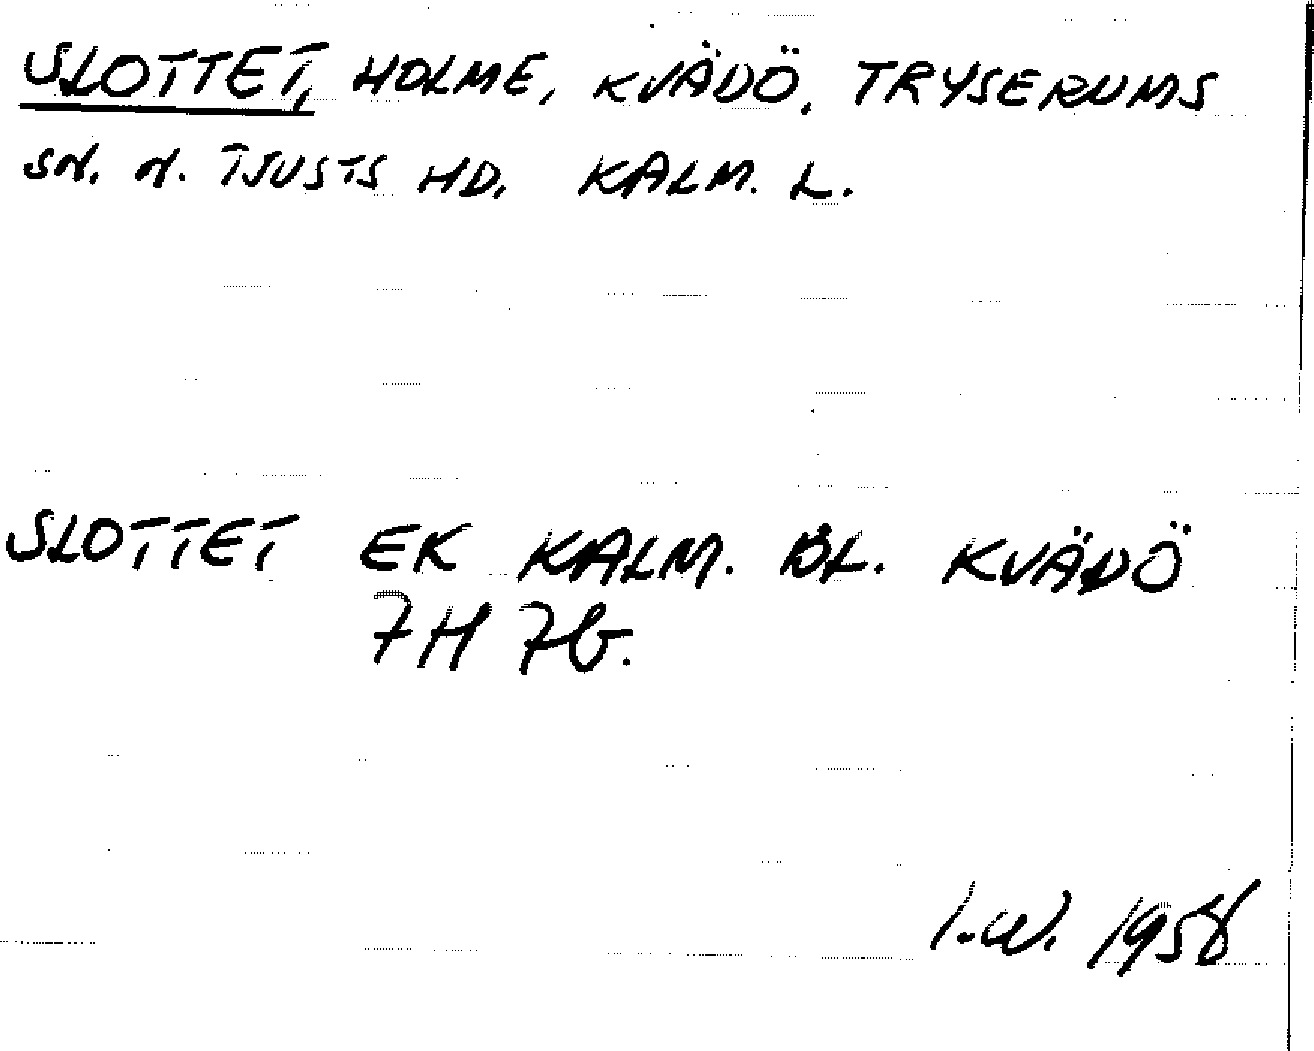 SLOTTET, HOLME, KVÄDÖ, TRYSERUMS
SN. N. TJUSTS HD. KALM. L.
SLOTTET EK KALM. BL. KVÄDÖ
7H 7b.
I.W. 1958